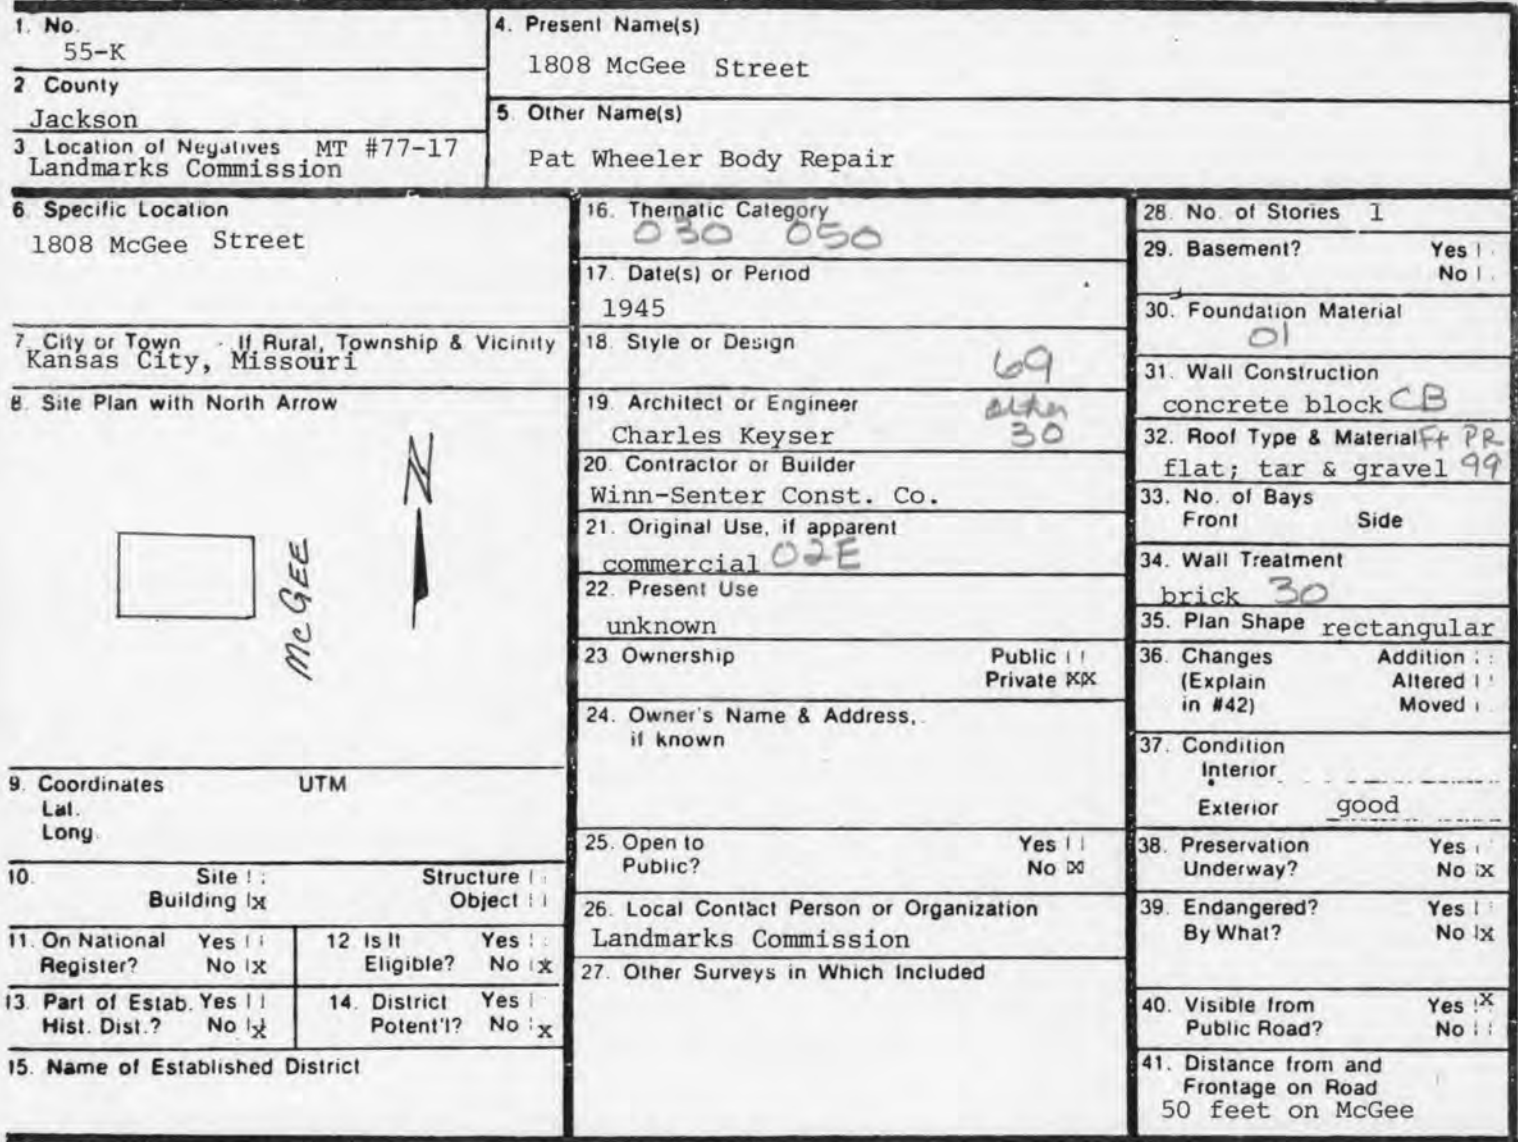 1. No.
55-K
2 County
Jackson
3 Location of Negatives MT #77-17
Landmarks Commission
4. Present Name(s)
1808 McGee Street
5. Other Name(s)
Pat Wheeler Body Repair
6. Specific Location
1808 McGee Street
7. City or Town If Rural, Township & Vicinity
Kansas City, Missouri
8. Site Plan with North Arrow
N
McGEE
9. Coordinates UTM
Lat.
Long.
10. Site Structure
Building x Object
11. On National Yes
Register? No x
12 Is It Yes
Eligible? No x
13. Part of Estab. Yes
Hist. Dist.? No x
14. District Yes
Potent'l? No x
15. Name of Established District
16. Thematic Category
030 050
17. Date(s) or Period
1945
18. Style or Design
69
19. Architect or Engineer other
Charles Keyser 30
20. Contractor or Builder
Winn-Senter Const. Co.
21. Original Use, if apparent
commercial 02E
22. Present Use
unknown
23 Ownership Public
Private XX
24. Owner's Name & Address,
if known
25. Open to Yes
Public? No X
26. Local Contact Person or Organization
Landmarks Commission
27. Other Surveys in Which Included
28. No. of Stories 1
29. Basement? Yes
No
30. Foundation Material
01
31. Wall Construction
concrete block CB
32. Roof Type & Material Ft PR
flat; tar & gravel 99
33. No. of Bays
Front Side
34. Wall Treatment
brick 30
35. Plan Shape rectangular
36. Changes Addition
(Explain Altered
in #42) Moved
37. Condition
Interior
Exterior good
38. Preservation Yes
Underway? No x
39. Endangered? Yes
By What? No x
40. Visible from Yes x
Public Road? No
41. Distance from and
Frontage on Road
50 feet on McGee